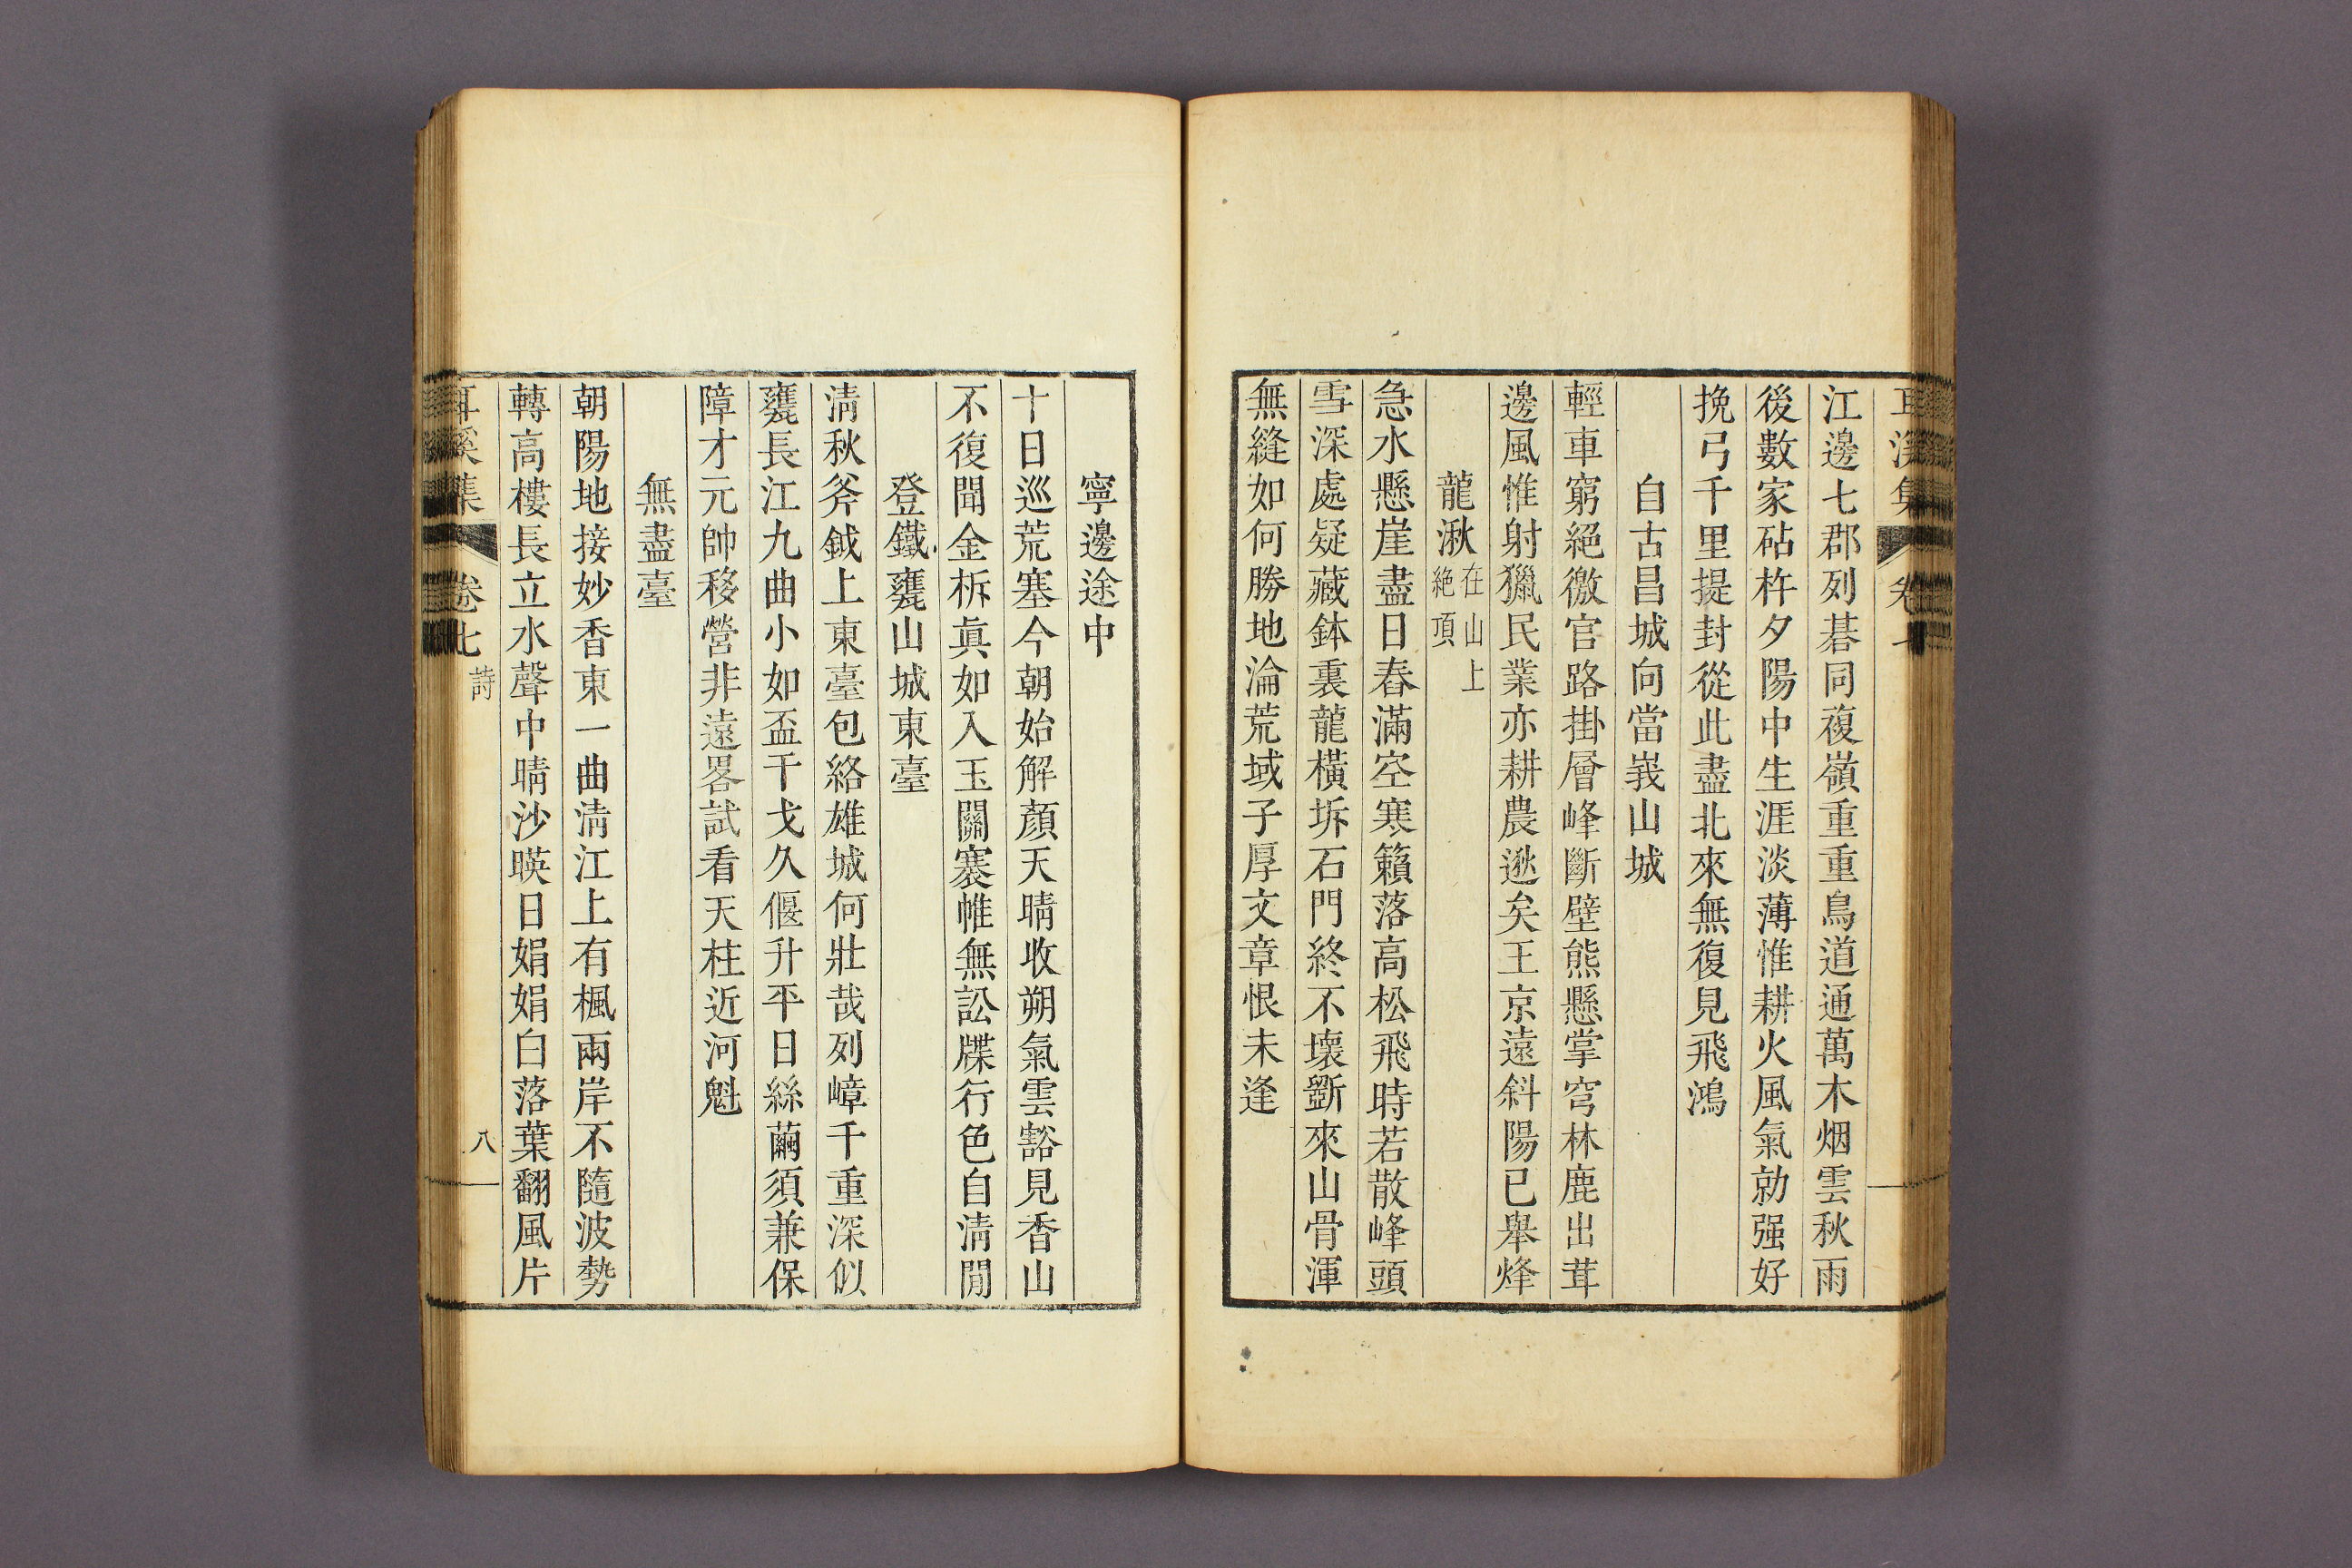 耳溪集 卷七
江邊七郡列碁同複嶺重重鳥道通萬木烟雲秋雨
後數家砧杵夕陽中生涯淡薄惟耕火風氣勍强好
挽弓千里提封從此盡北來無復見飛鴻
自古昌城向當峩山城
輕車窮絕徼官路掛層峰斷壁熊懸掌穹林鹿出茸
邊風惟射獵民業亦耕農逖矣王京遠斜陽已舉烽
龍湫在山上絶頂
急水懸崖盡日舂滿空寒籟落高松飛時若散峰頭
雪深處疑藏鉢裏龍橫坼石門終不壞斲來山骨渾
無縫如何勝地淪荒域子厚文章恨未逢
寧邊途中
十日巡荒塞今朝始解顏天晴收朔氣雲豁見香山
不復聞金柝眞如入玉關褰帷無訟牒行色自淸閒
登鐵甕山城東臺
淸秋斧鉞上東臺包絡雄城何壯哉列嶂千重深似
甕長江九曲小如盃干戈久偃升平日絲繭須兼保
障才元帥移營非遠畧試看天柱近河魁
無盡臺
朝陽地接妙香東一曲淸江上有楓兩岸不隨波勢
轉高樓長立水聲中晴沙暎日娟娟白落葉翻風片
耳溪集 卷七 詩 八